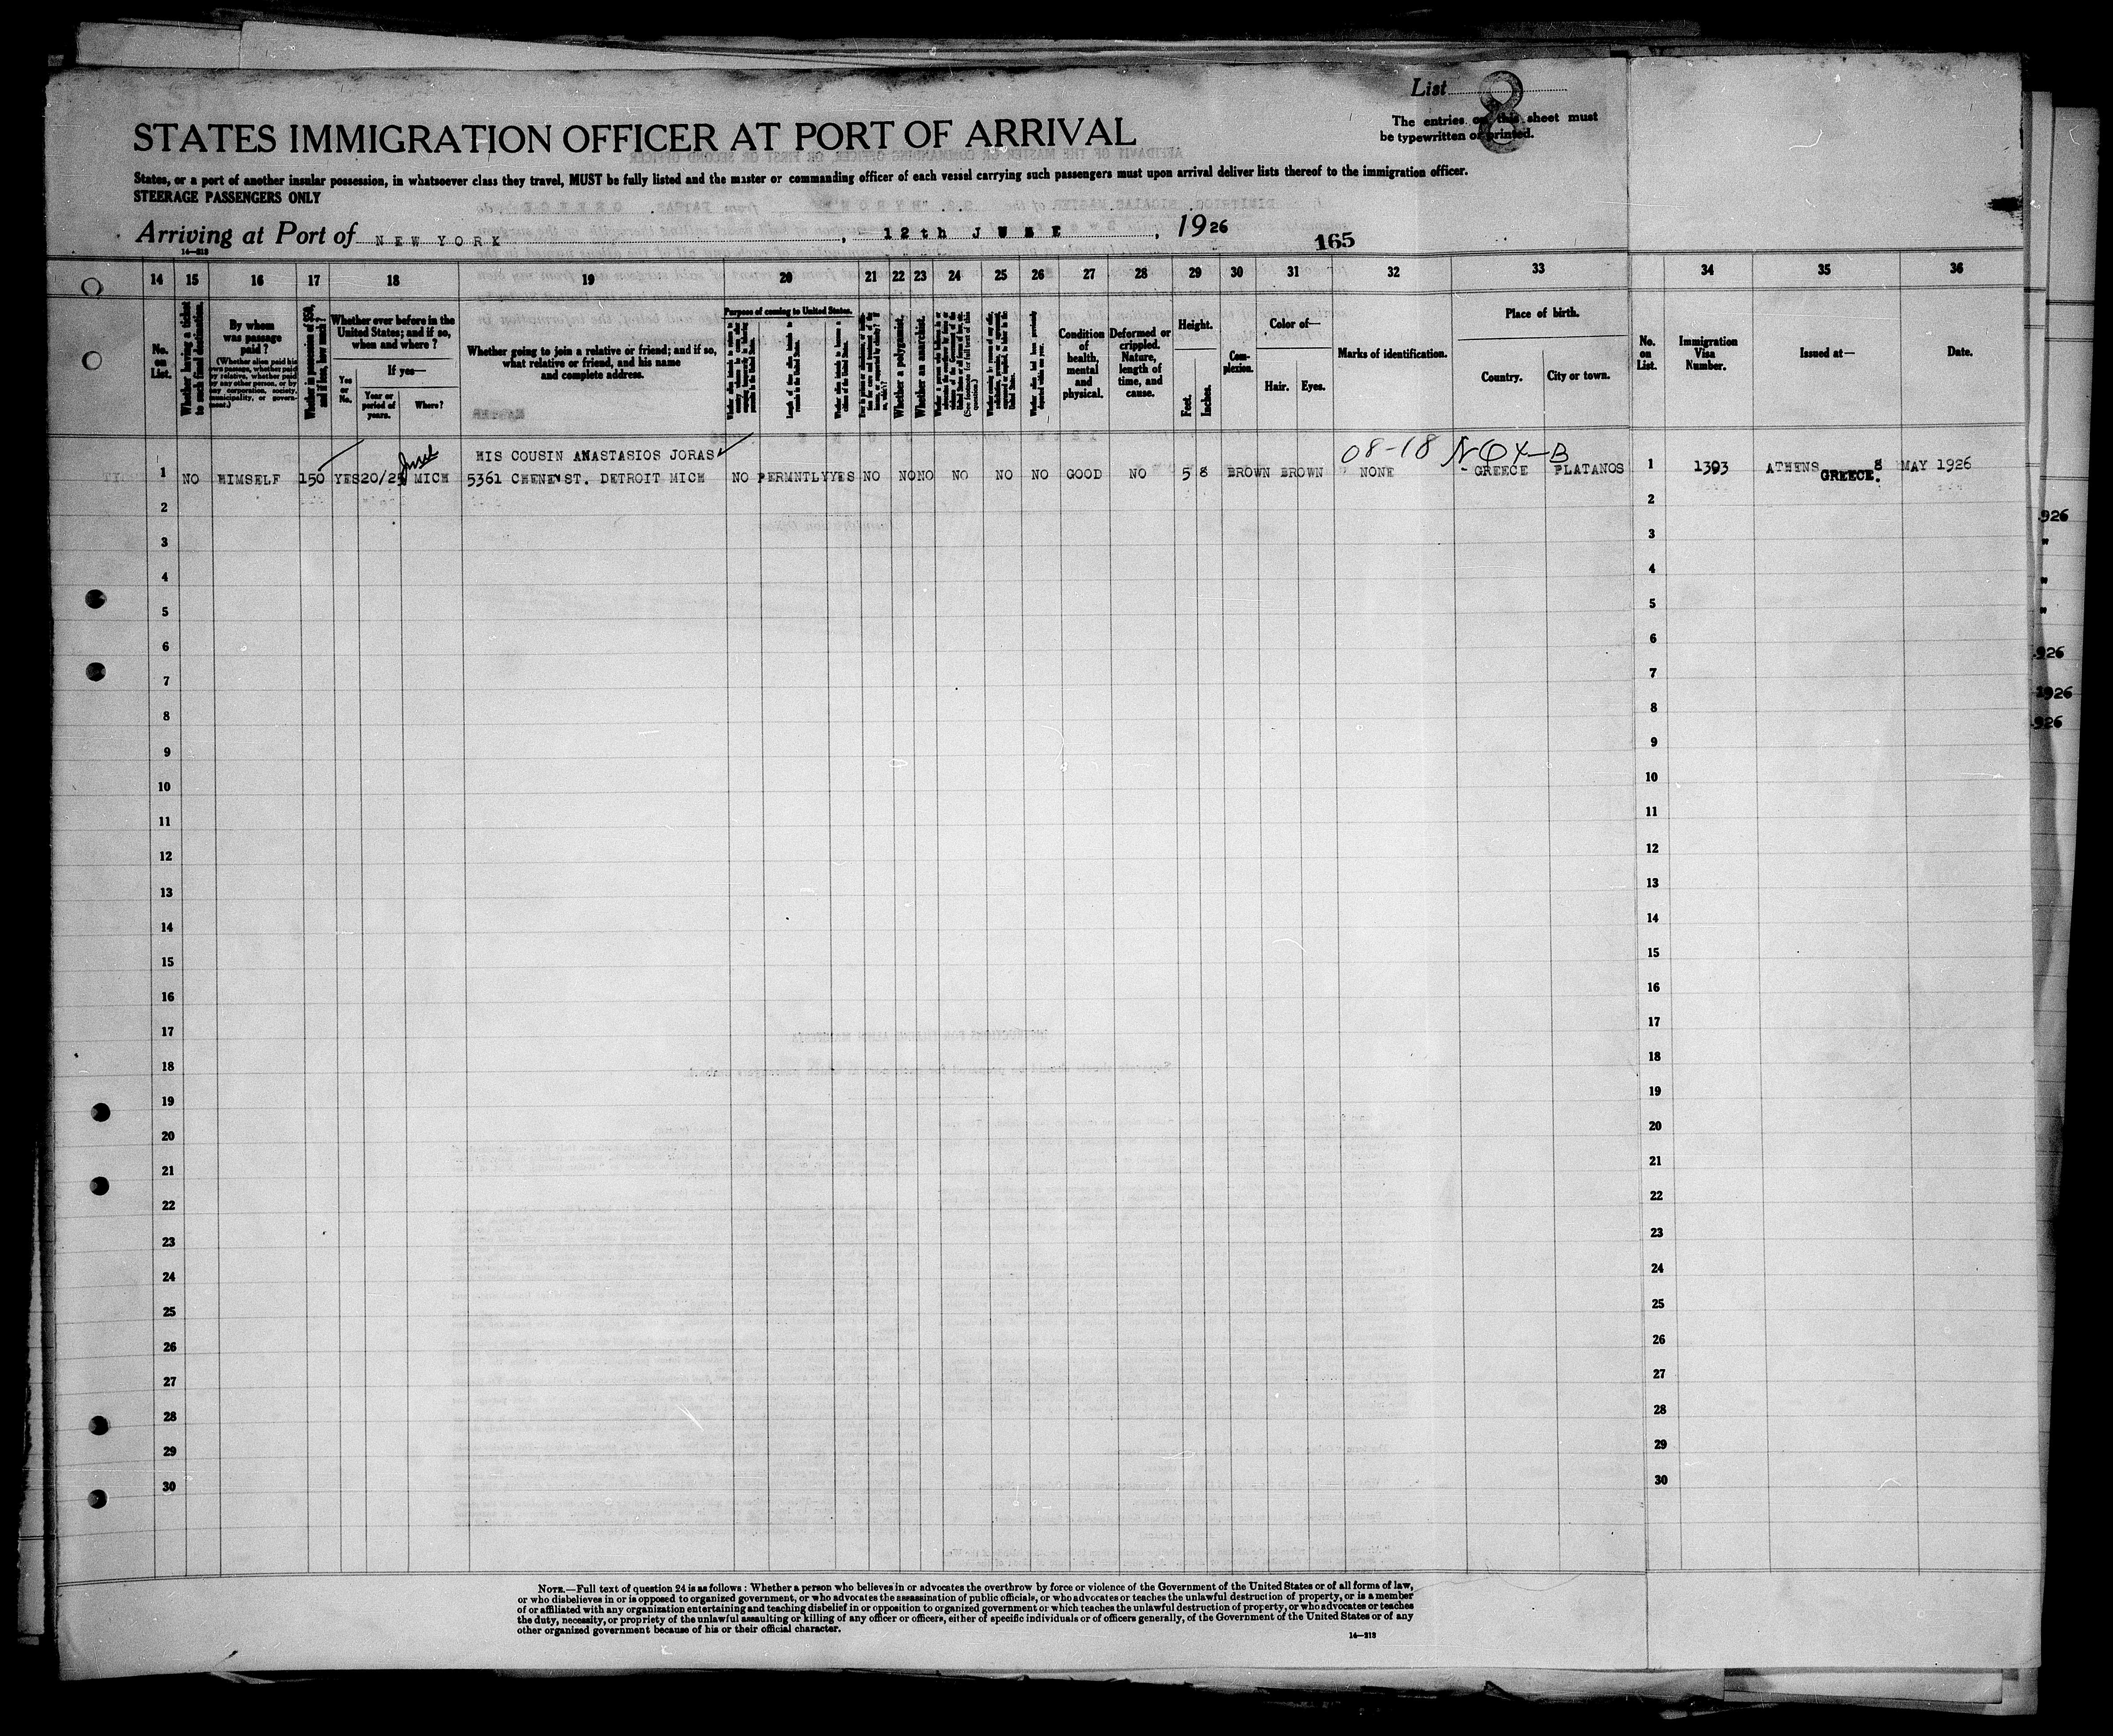 List 8
The entries on this sheet must
be typewritten or printed.
STATES IMMIGRATION OFFICER AT PORT OF ARRIVAL
States, or a port of another insular possession, in whatsoever class they travel, MUST be fully listed and the master or commanding officer of each vessel carrying such passengers must upon arrival deliver lists thereof to the immigration officer.
STEERAGE PASSENGERS ONLY
Arriving at Port of NEW YORK, 12th JUNE, 1926
14-313
165
14 15 16 17 18 19 20 21 22 23 24 25 26 27 28 29 30 31 32 33 34 35 36
No. on List.
Whether having a ticket to such final destination.
By whom was passage paid?
(Whether alien paid his own passage, whether paid by relative, whether paid by any other person, or by any corporation, society, municipality, or government.)
Whether in possession of $50, and if less, how much?
Whether ever before in the United States; and if so, when and where?
Yes or No.
If yes—
Year or period of years.
Where?
Whether going to join a relative or friend; and if so, what relative or friend, and his name and complete address.
Purpose of coming to United States.
Whether a polygamist.
Whether an anarchist.
Condition of health, mental and physical.
Deformed or crippled. Nature, length of time, and cause.
Height.
Feet. Inches.
Complexion.
Color of—
Hair. Eyes.
Marks of identification.
Place of birth.
Country. City or town.
No. on List.
Immigration Visa Number.
Issued at—
Date.
HIS COUSIN ANASTASIOS JORAS
08-18
1 NO HIMSELF 150 YES 20/25 MICH 5361 CHENE ST. DETROIT MICH NO PERMNTLY YES NO NO NO NO NO NO GOOD NO 5 8 BROWN BROWN NONE GREECE PLATANOS 1 1303 ATHENS GREECE. 8 MAY 1926
2 2
3 3
4 4
5 5
6 6
7 7
8 8
9 9
10 10
11 11
12 12
13 13
14 14
15 15
16 16
17 17
18 18
19 19
20 20
21 21
22 22
23 23
24 24
25 25
26 26
27 27
28 28
29 29
30 30
926
926
1926
926
NOTE.—Full text of question 24 is as follows: Whether a person who believes in or advocates the overthrow by force or violence of the Government of the United States or of all forms of law,
or who disbelieves in or is opposed to organized government, or who advocates the assassination of public officials, or who advocates or teaches the unlawful destruction of property, or is a member
of or affiliated with any organization entertaining and teaching disbelief in or opposition to organized government or which teaches the unlawful destruction of property, or who advocates or teaches
the duty, necessity, or propriety of the unlawful assaulting or killing of any officer or officers, either of specific individuals or of officers generally, of the Government of the United States or of any
other organized government because of his or their official character.
14-313